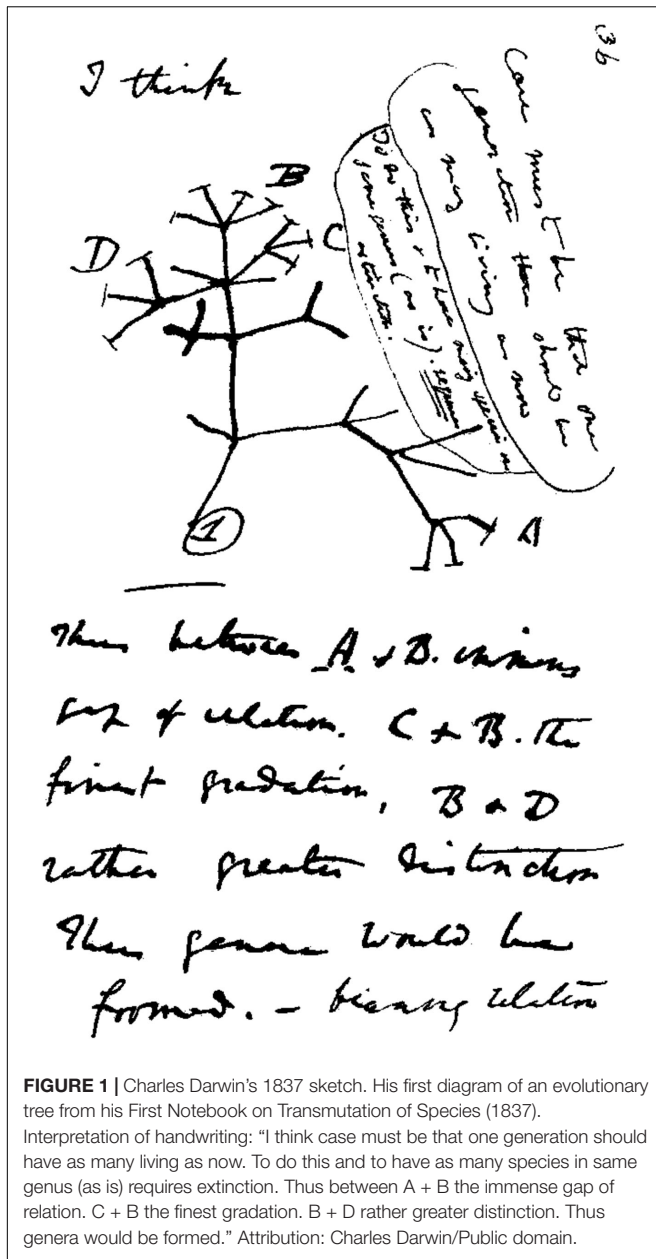 36
I think
Case must be that one
generation then should be
as many living as now
To do this & to have many species in
same genus (as is). requires
extinction.
B
C
D
A
1
Thus between A & B. immense
gap of relation. C & B. The
finest gradation, B & D
rather greater distinction
Thus genera would be
formed. — bearing relation
FIGURE 1 | Charles Darwin's 1837 sketch. His first diagram of an evolutionary
tree from his First Notebook on Transmutation of Species (1837).
Interpretation of handwriting: “I think case must be that one generation should
have as many living as now. To do this and to have as many species in same
genus (as is) requires extinction. Thus between A + B the immense gap of
relation. C + B the finest gradation. B + D rather greater distinction. Thus
genera would be formed.” Attribution: Charles Darwin/Public domain.